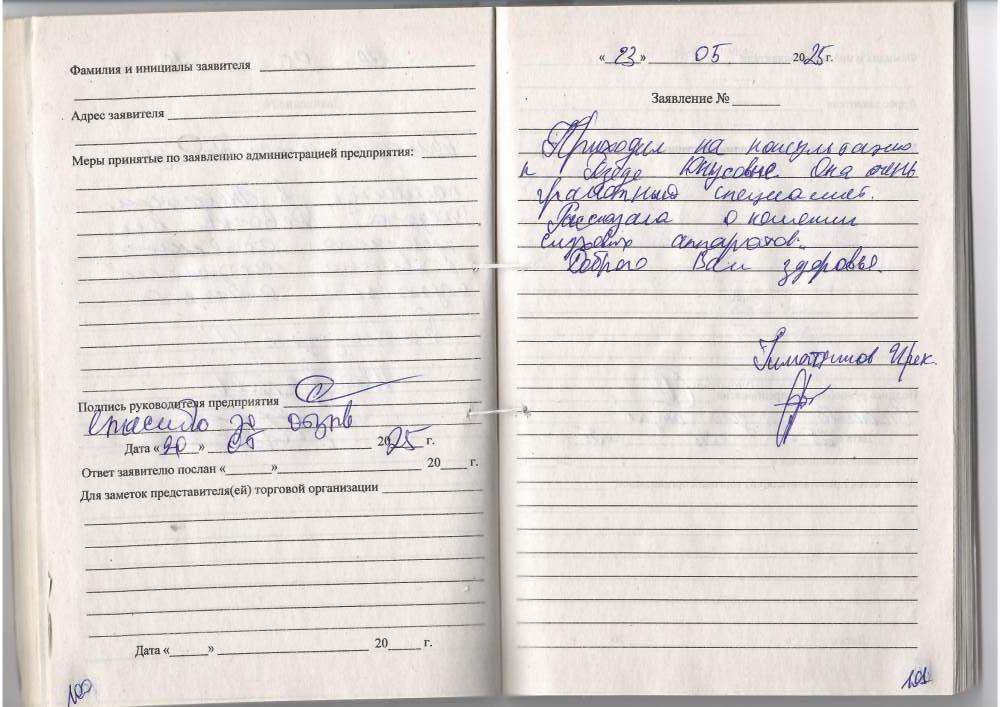 Фамилия и инициалы заявителя
Адрес заявителя
Меры принятые по заявлению администрацией предприятия:
Подпись руководителя предприятия
Спасибо за отзыв
Дата «20» 05 2025 г.
Ответ заявителю послан «      » 20     г.
Для заметок представителя(ей) торговой организации
Дата «      » 20     г.
100
«23» 05 2025 г.
Заявление №
Приходил на консультацию
к Юнусовые. Она очень
грамотный специалист.
Рассказала о ношении
слуховых аппаратов.
Доброго Вам здоровья.
Ирек
101